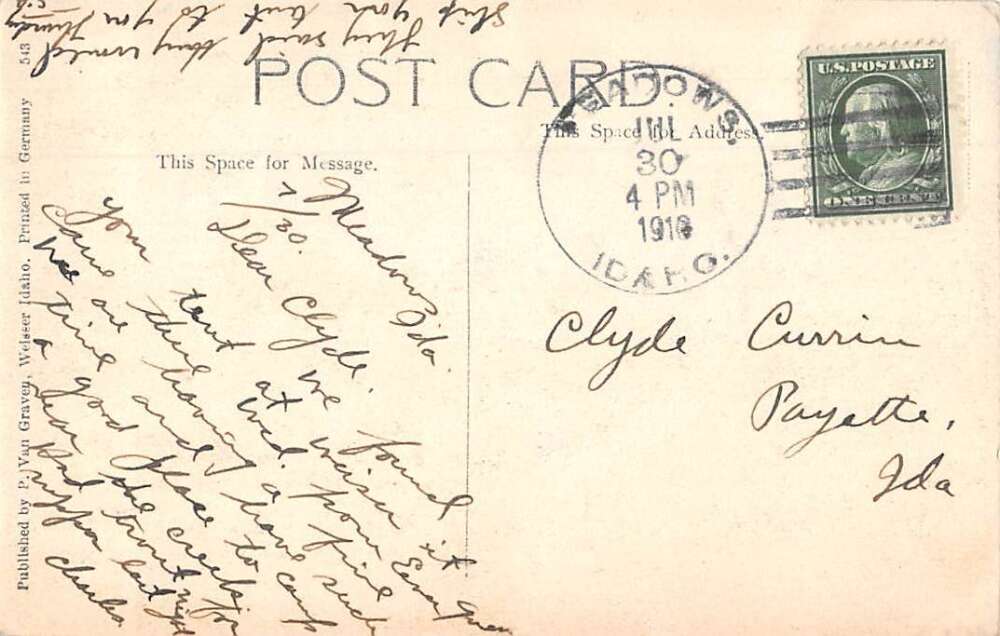 They said they would
ship your tent to you Sunday
POST CARD.
This Space for Message.
This Space for Address.
MEADOWS,
JUL
30
4 PM
1910
IDAHO.
U.S. POSTAGE
ONE CENT
Meadows Ida.
7/30.
Dear Clyde.
We found
your tent at Weiser it
came up Wed.
are there having a fine
time and have such
a good place to camp
near the creek
had trout for
supper last night
Charles
Clyde Currin
Payette,
Ida
Published by P. Van Graven, Weiser Idaho. Printed in Germany 543